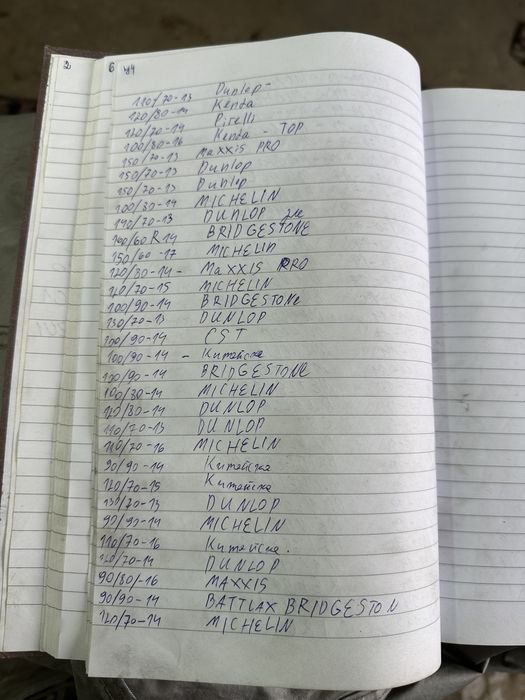 2 6 44
110/70-13 Dunlop-
120/80-14 Kenda
120/70-14 Pirelli
100/80-16 Kenda - TOP
150/70-13 Maxxis PRO
150/70-13 Dunlop
150/70-13 Dunlop
100/80-14 MICHELIN
140/70-13 DUNLOP
160/60 R14 BRIDGESTONE
150/60-17 MICHELIN
120/80-14- MaXXIS PRO
120/70-15 MICHELIN
100/90-14 BRIDGESTONe
130/70-13 DUNLOP
100/90-14 CST
100/90-14 - Китайска
100/90-14 BRIDGESTONE
100/80-14 MICHELIN
120/80-14 DUNLOP
110/70-13 DUNLOP
110/70-16 MICHELIN
90/90-14 Китайска
120/70-15 Китайска
130/70-13 DUNLOP
90/90-14 MICHELIN
110/70-16 Китайска.
120/70-14 DUNLOP
90/80/-16 MAXXIS
90/90-14 BATTLAX BRIDGESTON
120/70-14 MICHELIN